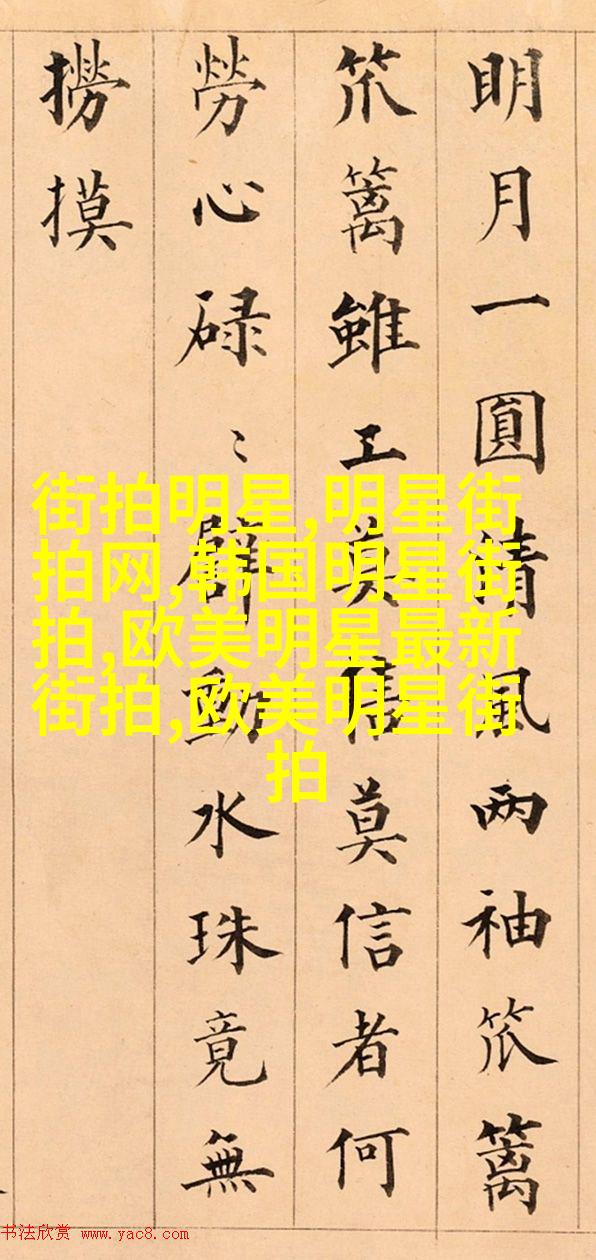 明月一圓清風两袖笊篱
笊篱雖工信莫信者何
勞心碌〻動水珠竟無
撈摸
街拍明星,明星街
拍网,韩国明星街
拍,欧美明星最新
街拍,欧美明星街
拍
书法欣赏 www.yac8.com